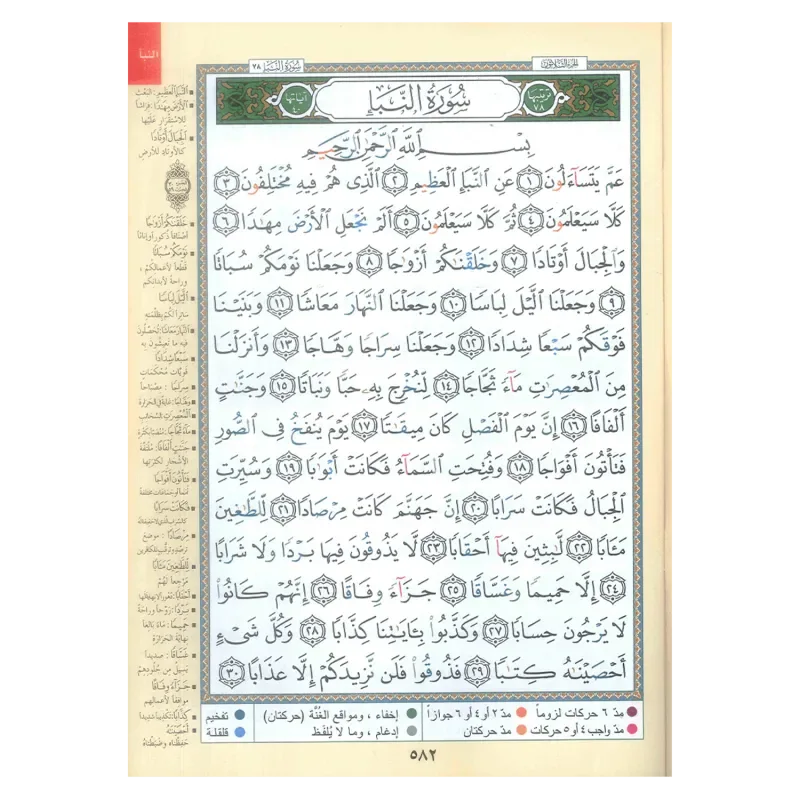 النبأ
سُورَةُ النَّبَإِ ٧٨
الجزء الثلاثون
ترتيبها ٧٨
سُورَةُ النَّبَإِ
آياتها ٤٠
بِسْمِ اللَّهِ الرَّحْمَٰنِ الرَّحِيمِ
عَمَّ يَتَسَآءَلُونَ ١ عَنِ النَّبَإِ الْعَظِيمِ ٢ الَّذِى هُمْ فِيهِ مُخْتَلِفُونَ ٣
كَلَّا سَيَعْلَمُونَ ٤ ثُمَّ كَلَّا سَيَعْلَمُونَ ٥ أَلَمْ نَجْعَلِ الْأَرْضَ مِهَٰدًا ٦
وَالْجِبَالَ أَوْتَادًا ٧ وَخَلَقْنَٰكُمْ أَزْوَٰجًا ٨ وَجَعَلْنَا نَوْمَكُمْ سُبَاتًا
٩ وَجَعَلْنَا الَّيْلَ لِبَاسًا ١٠ وَجَعَلْنَا النَّهَارَ مَعَاشًا ١١ وَبَنَيْنَا
فَوْقَكُمْ سَبْعًا شِدَادًا ١٢ وَجَعَلْنَا سِرَاجًا وَهَّاجًا ١٣ وَأَنزَلْنَا
مِنَ الْمُعْصِرَٰتِ مَآءً ثَجَّاجًا ١٤ لِّنُخْرِجَ بِهِۦ حَبًّا وَنَبَاتًا ١٥ وَجَنَّٰتٍ
أَلْفَافًا ١٦ إِنَّ يَوْمَ الْفَصْلِ كَانَ مِيقَٰتًا ١٧ يَوْمَ يُنفَخُ فِى الصُّورِ
فَتَأْتُونَ أَفْوَاجًا ١٨ وَفُتِحَتِ السَّمَآءُ فَكَانَتْ أَبْوَٰبًا ١٩ وَسُيِّرَتِ
الْجِبَالُ فَكَانَتْ سَرَابًا ٢٠ إِنَّ جَهَنَّمَ كَانَتْ مِرْصَادًا ٢١ لِّلطَّٰغِينَ
مَـَٔابًا ٢٢ لَّٰبِثِينَ فِيهَآ أَحْقَابًا ٢٣ لَّا يَذُوقُونَ فِيهَا بَرْدًا وَلَا شَرَابًا
٢٤ إِلَّا حَمِيمًا وَغَسَّاقًا ٢٥ جَزَآءً وِفَاقًا ٢٦ إِنَّهُمْ كَانُوا۟
لَا يَرْجُونَ حِسَابًا ٢٧ وَكَذَّبُوا۟ بِـَٔايَٰتِنَا كِذَّابًا ٢٨ وَكُلَّ شَىْءٍ
أَحْصَيْنَٰهُ كِتَٰبًا ٢٩ فَذُوقُوا۟ فَلَن نَّزِيدَكُمْ إِلَّا عَذَابًا ٣٠
النَّبَإِ الْعَظِيمِ: البعث
الْأَرْضَ مِهَٰدًا: فراشاً
للاستقرار عليها
الْجِبَالَ أَوْتَادًا
كالأوتاد للأرض
خَلَقْنَٰكُمْ أَزْوَٰجًا
أصنافاً ذكوراً وإناثاً
نَوْمَكُمْ سُبَاتًا
قطعاً لأعمالكم،
وراحة لأبدانكم
الَّيْلَ لِبَاسًا
ساتراً لكم بظلمته
النَّهَارَ مَعَاشًا: تحصّلون
فيه ما تعيشون به
سَبْعًا شِدَادًا
قويّات محكمات
سِرَاجًا: مصباحاً
وَهَّاجًا: غاية في الحرارة
الْمُعْصِرَٰتِ: السحائب
مَآءً ثَجَّاجًا: منصبّاً بكثرة
جَنَّٰتٍ أَلْفَافًا: ملتفّة
الأشجار لكثرتها
فَتَأْتُونَ أَفْوَاجًا
فَكَانَتْ سَرَابًا
مِرْصَادًا: موضع
ترصّد وترقّب للكافرين
لِلطَّٰغِينَ مَـَٔابًا
مرجعاً لهم
أَحْقَابًا: دهوراً لا نهاية لها
بَرْدًا: روحاً وراحة
حَمِيمًا: ماءً بالغاً
نهاية الحرارة
غَسَّاقًا: صديداً
يسيل من جلودهم
جَزَآءً وِفَاقًا
موافقاً لأعمالهم
كِذَّابًا: تكذيباً شديداً
أَحْصَيْنَٰهُ
حفظناه وضبطناه
مدّ ٦ حركات لزوماً
مدّ ٢ أو ٤ أو ٦ جوازاً
إخفاء، ومواقع الغُنَّة (حركتان)
تفخيم
مدّ واجب ٤ أو ٥ حركات
مدّ حركتان
إدغام، وما لا يُلفَظ
قلقلة
٥٨٢